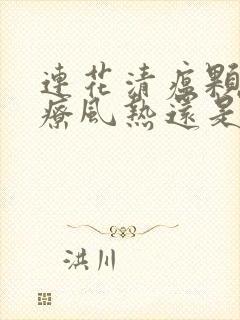 連花清瘟顆
療風熱還是
洪川